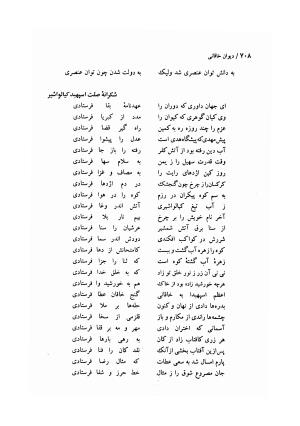 ۷۰۸ / دیوان خاقانی
به دانش توان عنصری شد ولیک به دولت شدن چون توان عنصری
شکرانهٔ صلت اسپهبد کیالواشیر
ای جهان داوری که دوران را عهدنامهٔ بقا فرستادی
وی کیان گوهری که کیوان را مدد از کبریا فرستادی
عزم را چند روزه ره به کمین راه گیر قضا فرستادی
پیش مهدی که پیشگاه هدی است عدل را پیشوا فرستادی
آب دین رفته بود از آتش کفر رفته را باز جا فرستادی
وقت قدرت سهیل را ز یمن به سلام سها فرستادی
روز کین اژدهای رایت را به مصاف و غزا فرستادی
کرکسان را ز چرخ چون گنجشک در دم اژدها فرستادی
به سم کوه پیکران در رزم کوه را در هوا فرستادی
ز آب تیغ کیالواشیری آتش اندر وغا فرستادی
آخر نام خویش را بر چرخ بیم نار بلا فرستادی
از سنا برق آتش شمشیر عرشیان را سنا فرستادی
شررش در کواکب افکندی دودش اندر سما فرستادی
کوه را زهره آب گشت و ببست کامتحانش از دها فرستادی
زهره آب گشتهٔ کوه است که ثنا را جزا فرستادی
نی نی آن زر ز نور خلق تو زاد که به خلق خدا فرستادی
هرچه خورشید زاده بود از خاک هم به خورشید وا فرستادی
اعظم اسپهبدا به خاقانی گنج خاقان عطا فرستادی
بدره‌های از نهان و کنون حله‌ها بر ملا فرستادی
چشمه‌ها راندی از مکارم و باز قلزمی از سخا فرستادی
آسمانی که اختران دادی مهر و مه بر قفا فرستادی
هر زری کافتاب زاد از کان به رهی بارها فرستادی
پس از این آفتاب بخشی از آنک نقد کان را فنا فرستادی
پارم امسال شد به سعی عطات که مثال رضا فرستادی
جان مصروع شوق را ز مثال خط حرز و شفا فرستادی